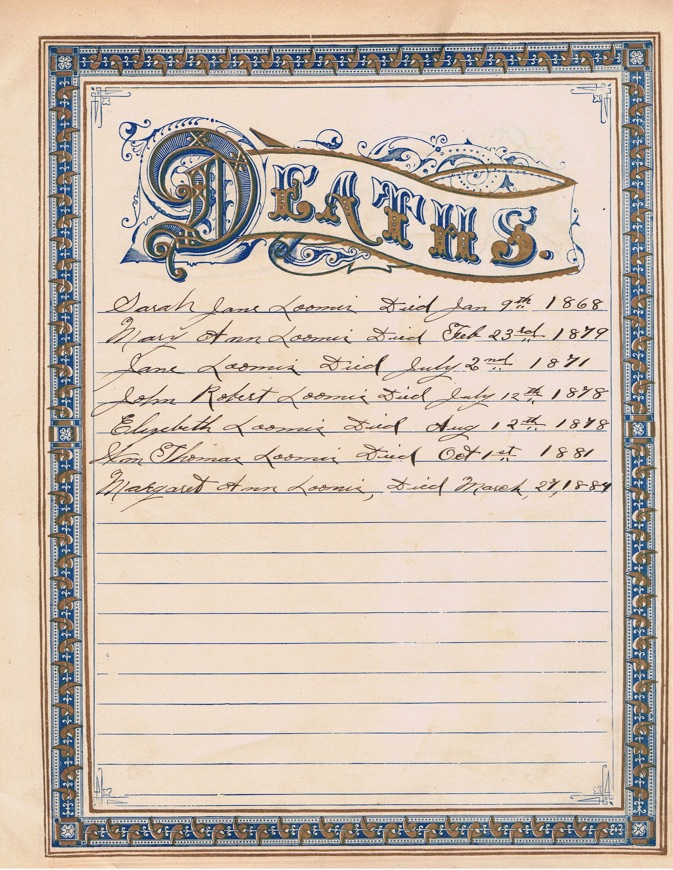 DEATHS.
Sarah Jane Loomis Died Jan 9th 1868
Mary Ann Loomis Died Feb 23rd 1879
Jane Loomis Died July 2nd 1871
John Robert Loomis Died July 12th 1878
Elizebeth Loomis Died Aug 12th 1878
Wm Thomas Loomis Died Oct 1st 1881
Margaret Ann Loomis, Died March, 27, 1884